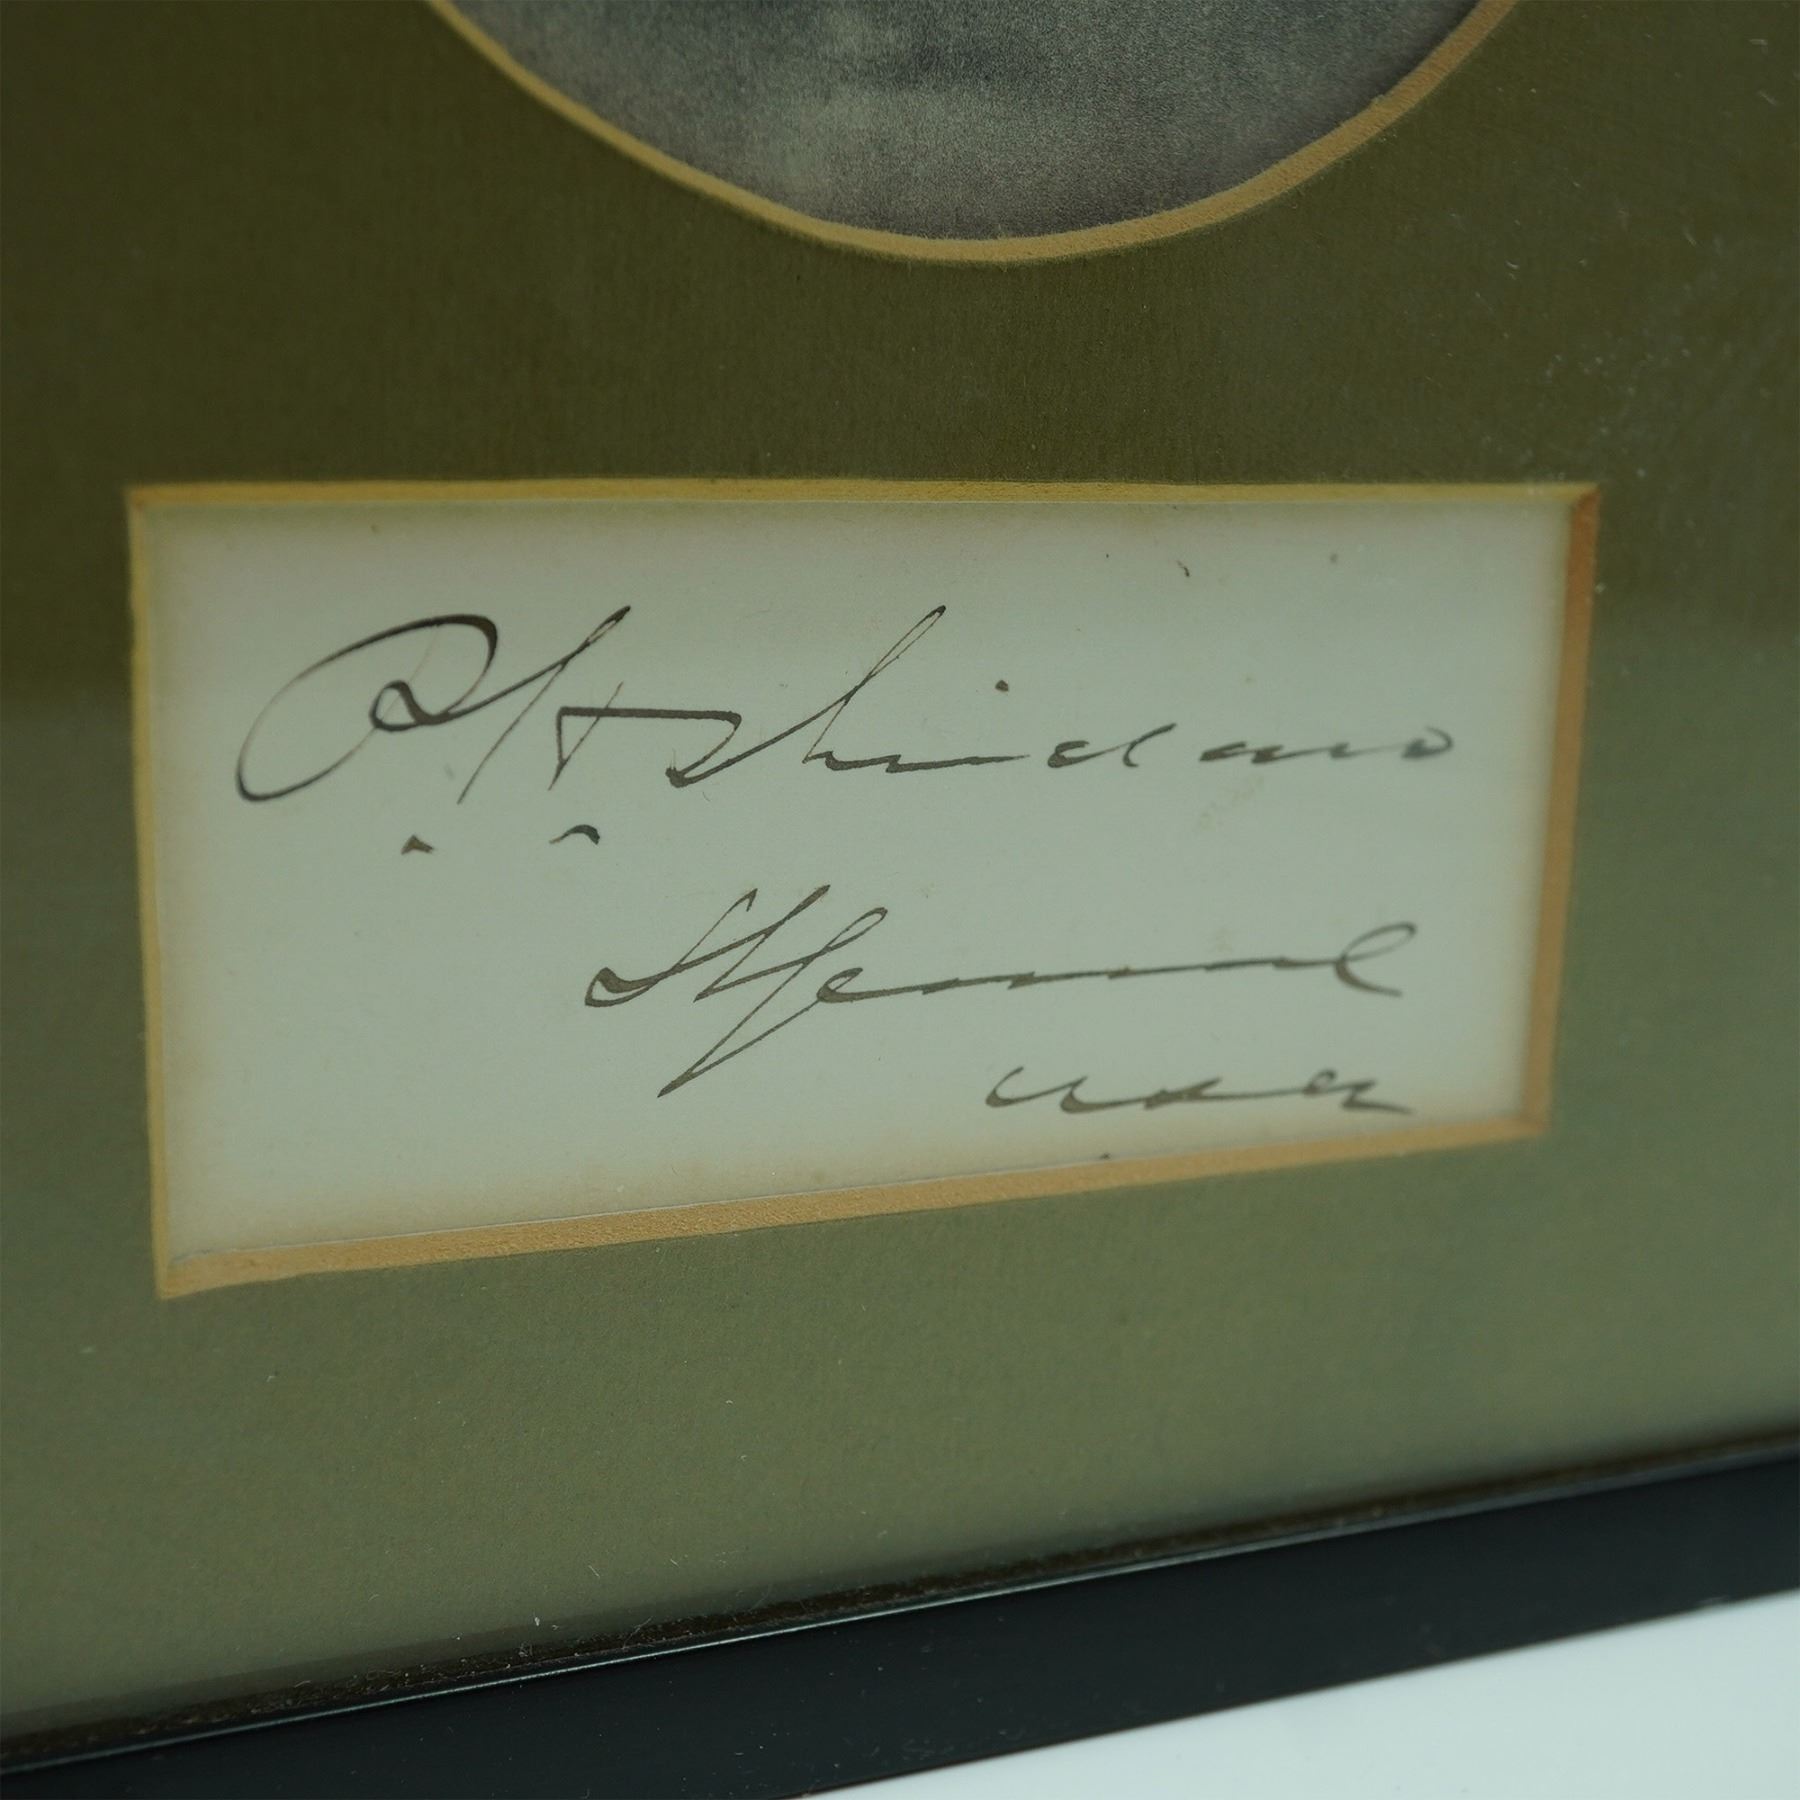 P. H. Sheridan
Lt General
USA